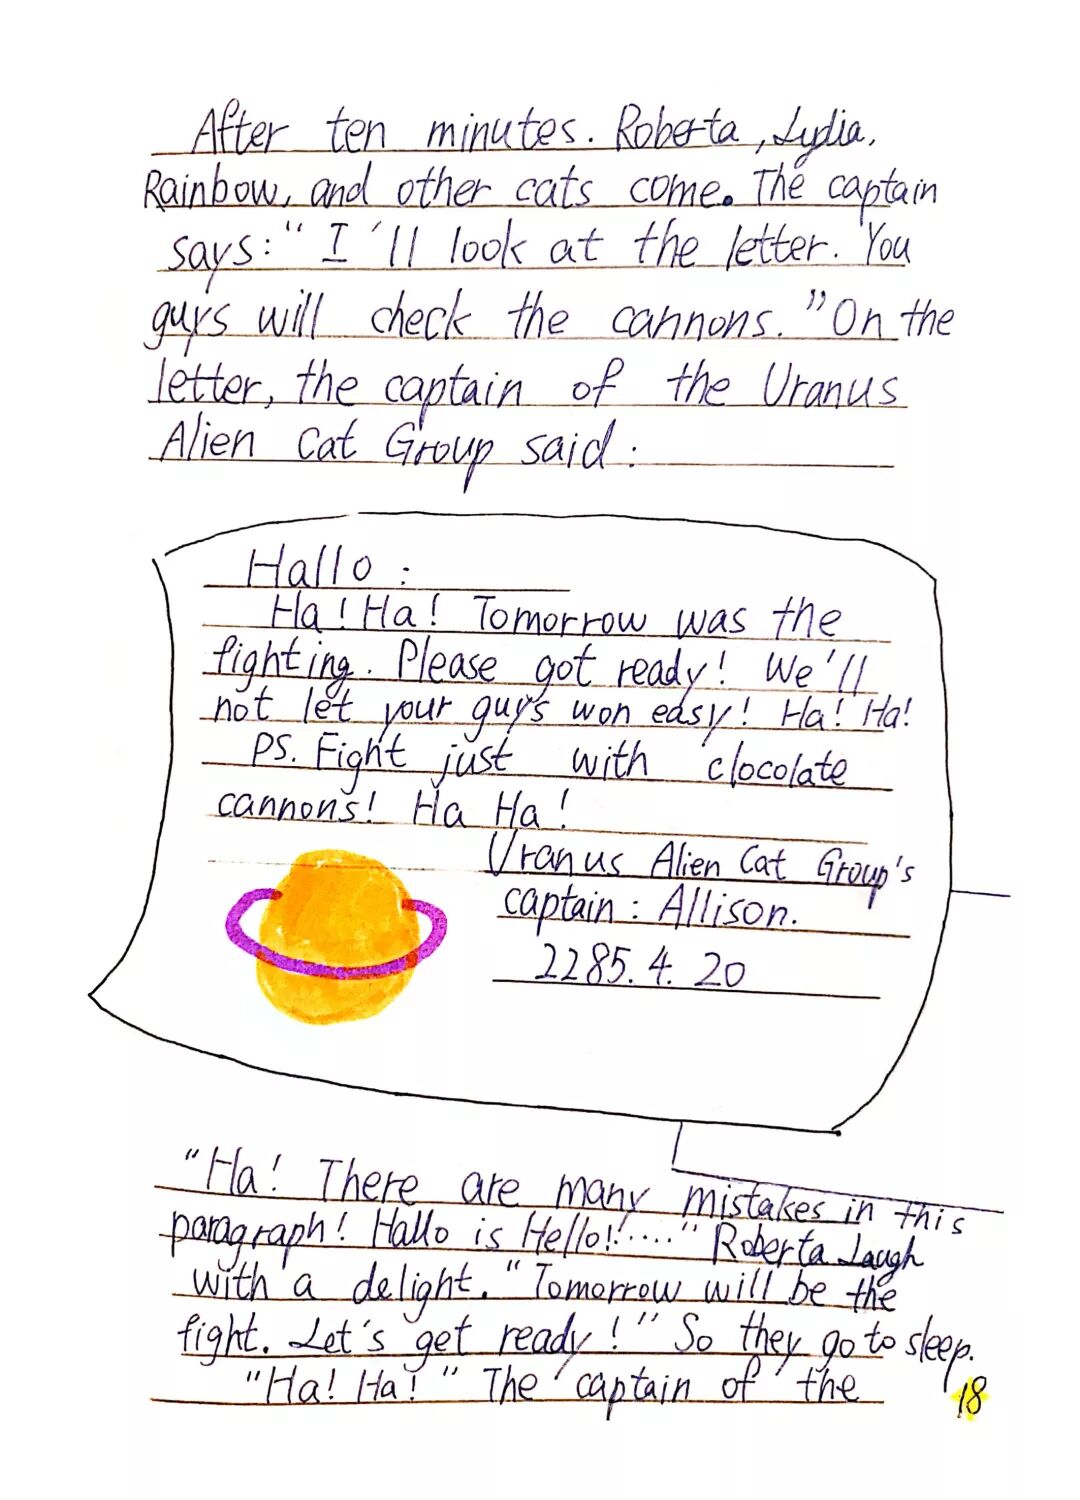 After ten minutes. Roberta, Lydia,
Rainbow, and other cats come. The captain
says: "I'll look at the letter. You
guys will check the cannons." On the
letter, the captain of the Uranus
Alien Cat Group said:
Hallo:
Ha! Ha! Tomorrow was the
fighting. Please got ready! We'll
not let your guys won easy! Ha! Ha!
PS. Fight just with clocolate
cannons! Ha Ha!
Uranus Alien Cat Group's
captain: Allison.
2285.4.20
"Ha! There are many mistakes in this
paragraph! Hallo is Hello!!....." Roberta Laugh
with a delight. "Tomorrow will be the
fight. Let's get ready!" So they go to sleep.
"Ha! Ha!" The captain of the
18